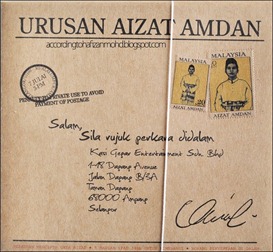 URUSAN AIZAT AMDAN
accordingtohafizanmohd.blogspot.com
2 JULAI
PENALTY PRIVATE USE TO AVOID
PAYMENT OF POSTAGE
MALAYSIA
MALAYSIA
20
AIZAT AMDAN
Salam,
Sila rujuk perkara didalam
Kasi Gegar Entertainment Sdn. Bhd
1-18 Dapang Avenue
Jalan Dapang B/3A
Taman Dapang
68000 Ampang
Selangor